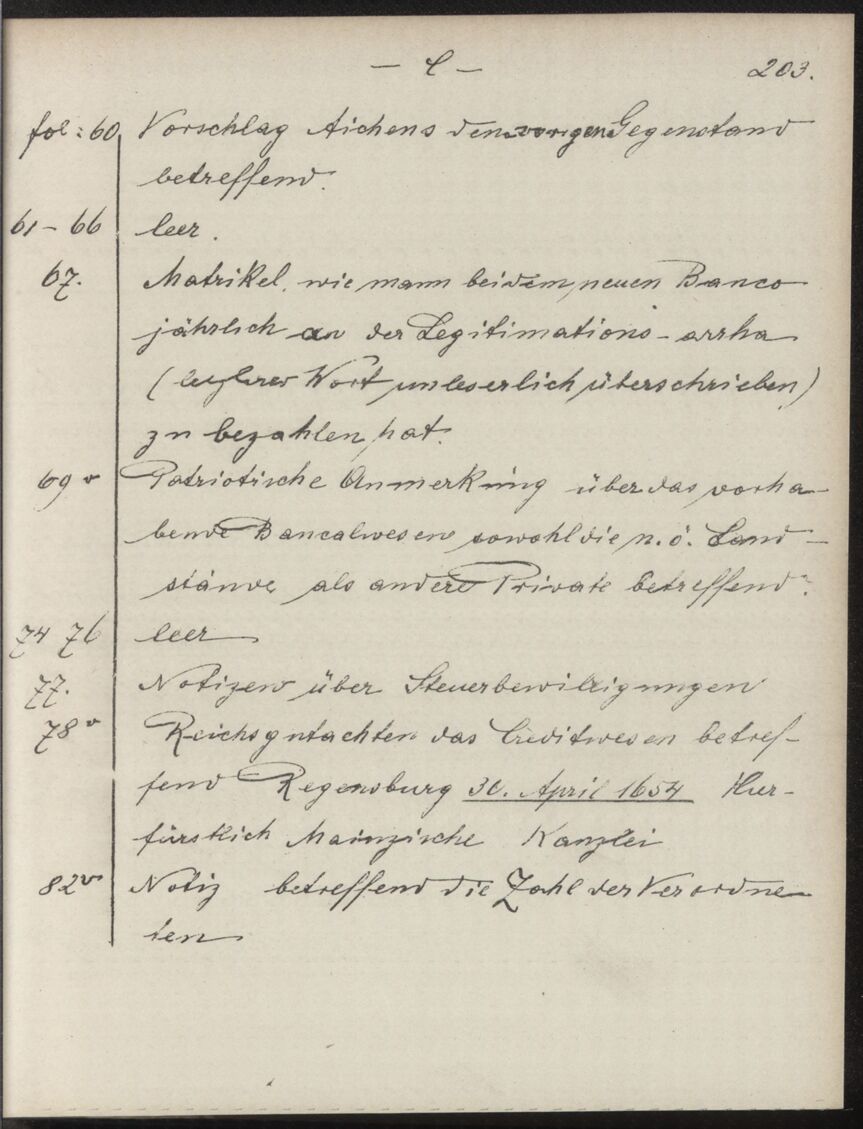 203.
fol: 60 Vorschlag Aichens den vorigen Gegenstand
betreffend.
61 - 66 leer.
67. Matrikel, wie mann bei dem neuen Banco
jährlich an der Legitimations-arrha
(letzteres Wort unleserlich überschrieben)
zu bezahlen hat.
69 v Patriotische Anmerkung über das vorha-
bende Bancalwesen sowohl die n. ö. Land-
stände als andere Private betreffend.
74 76 leer
77. Notizen über Steuerbewilligungen
78 v Reichsgutachten das Creditwesen betref-
fend Regensburg 30. April 1654 Kur-
fürstlich Mainzische Kanzlei
82 v Notiz betreffend die Zahl der Verordne-
ten